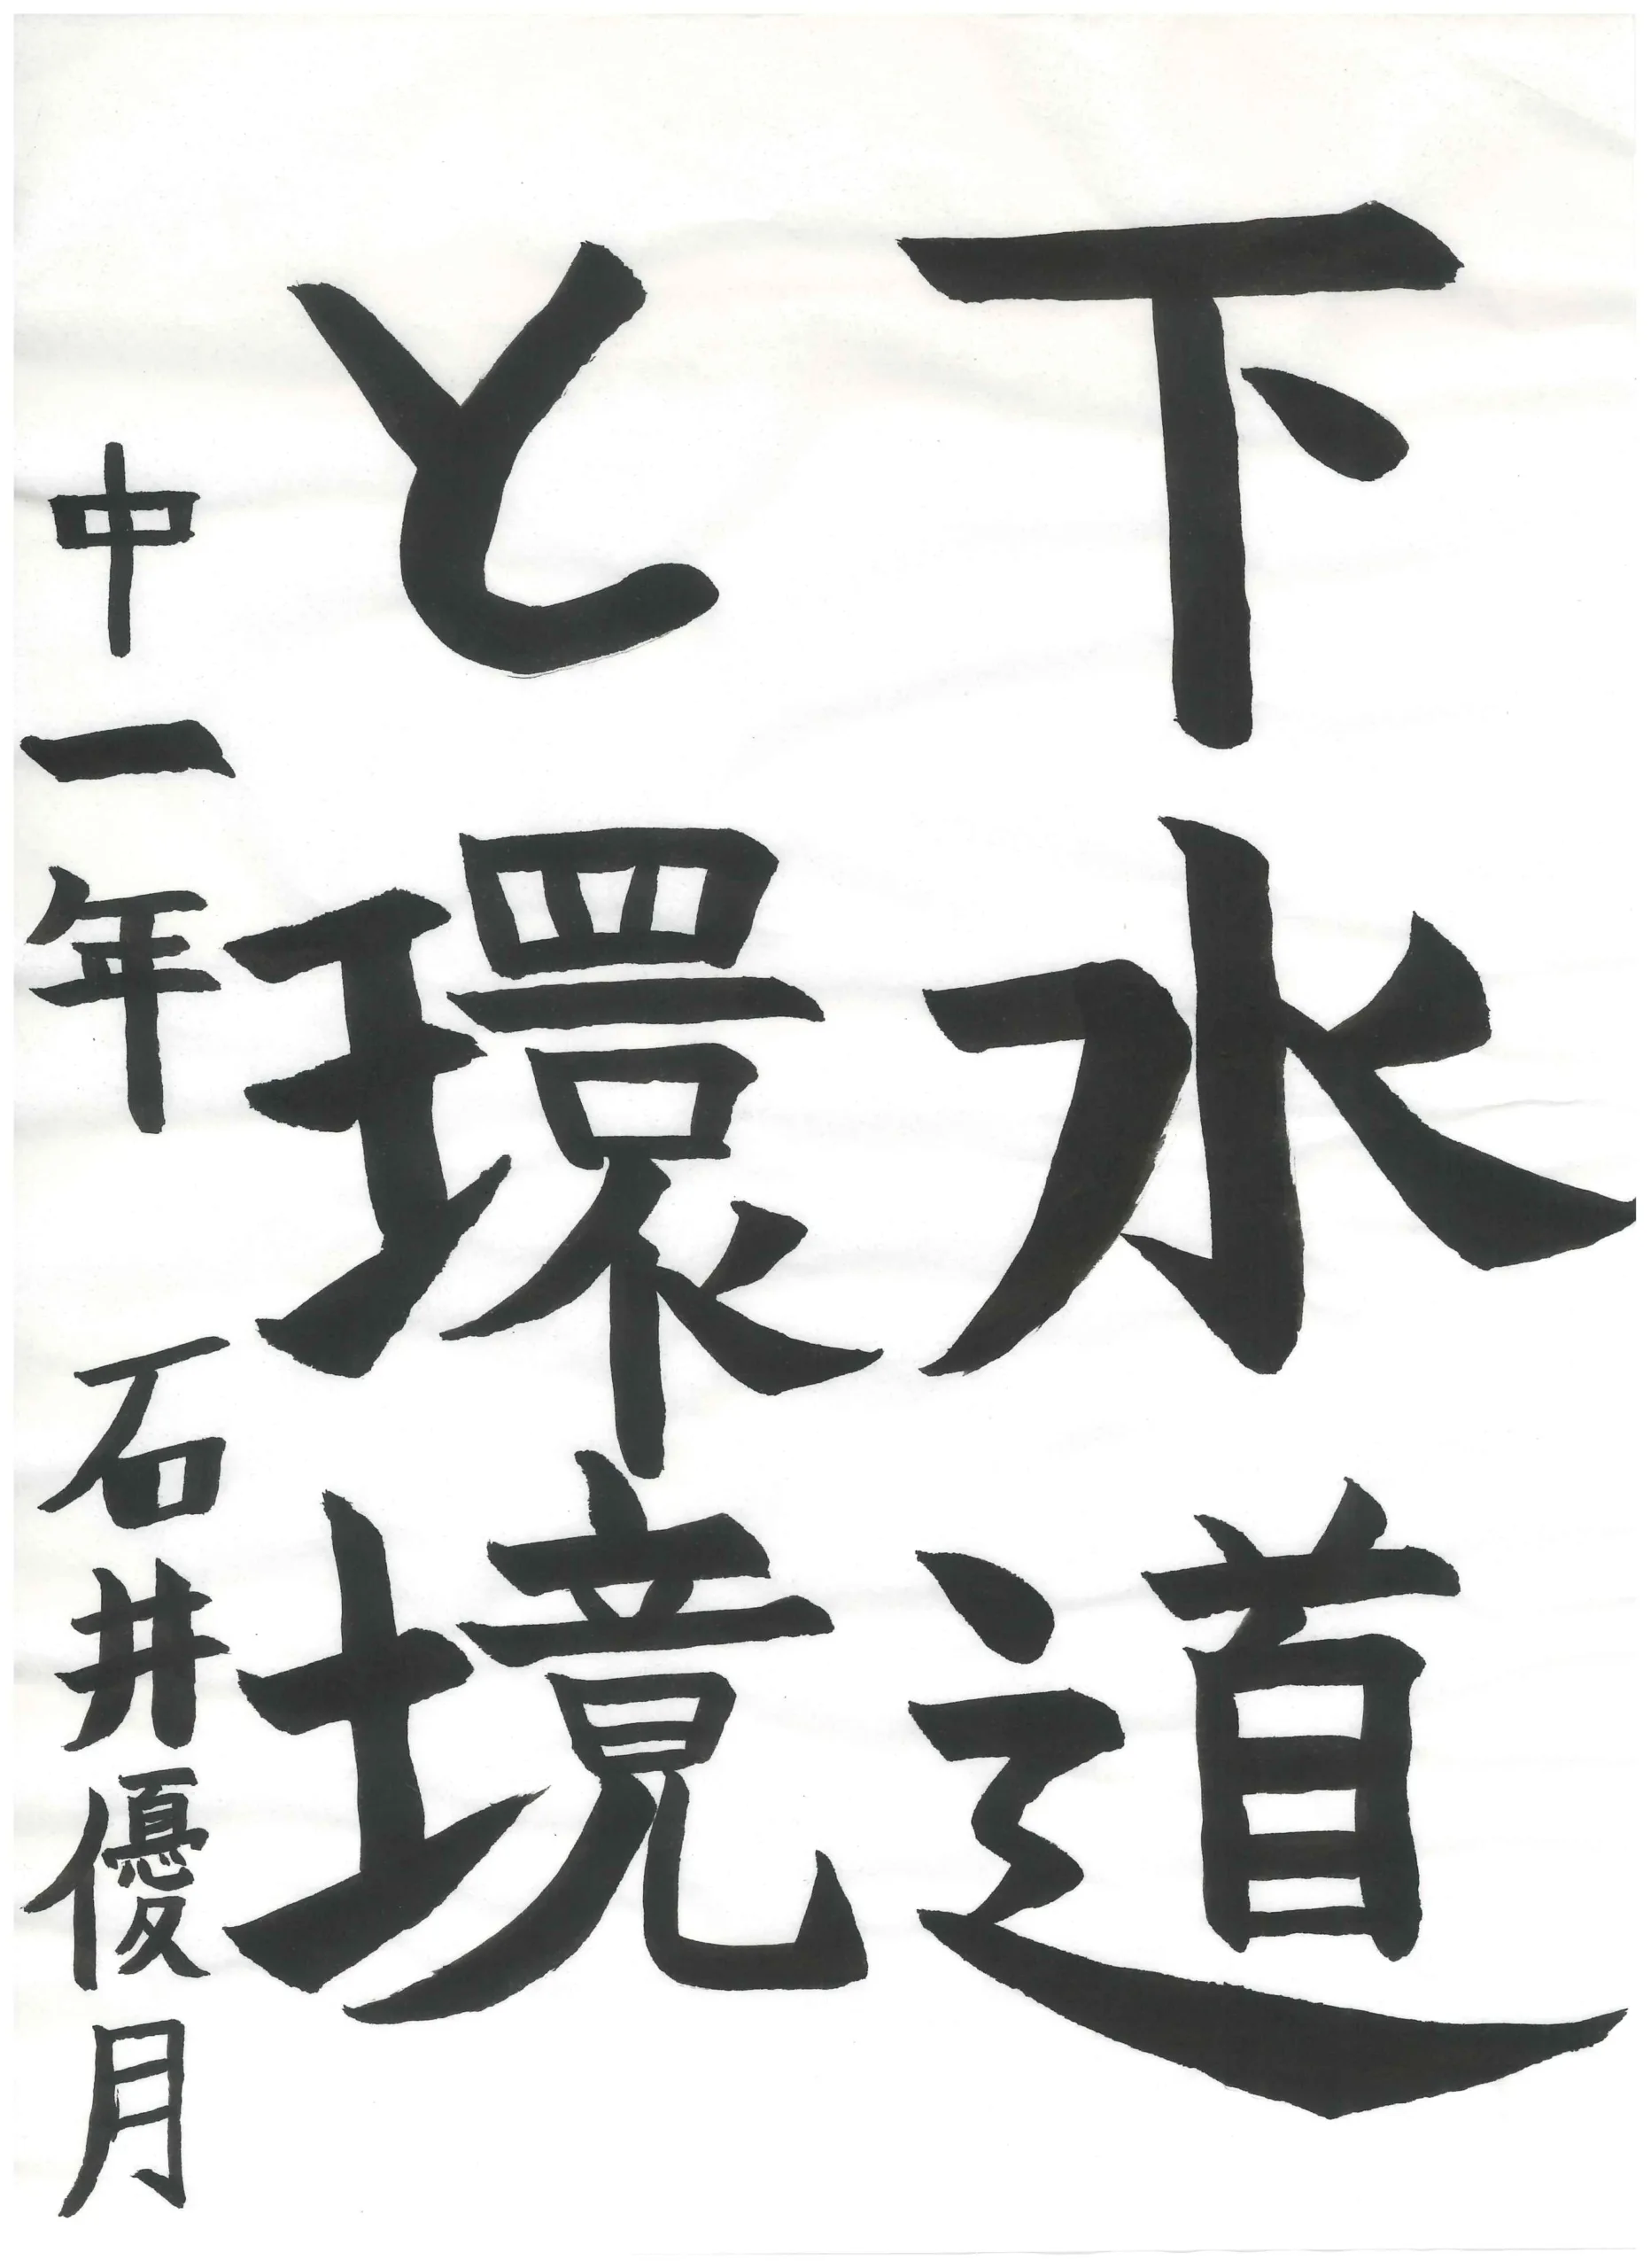 下水道
と環境
中一年 石井優月